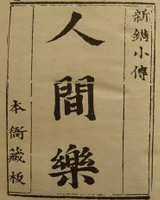 新鐫小傳
人間樂
本衙藏板